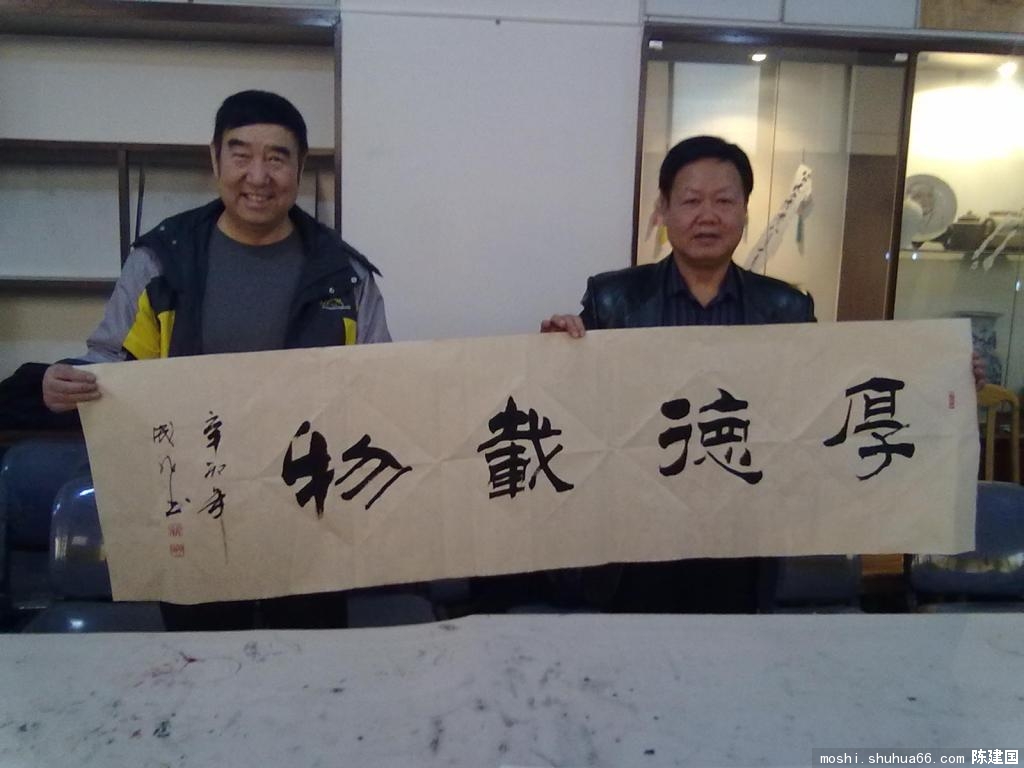 厚德載物
辛卯年
成水书
moshi.shuhua66.com 陈建国